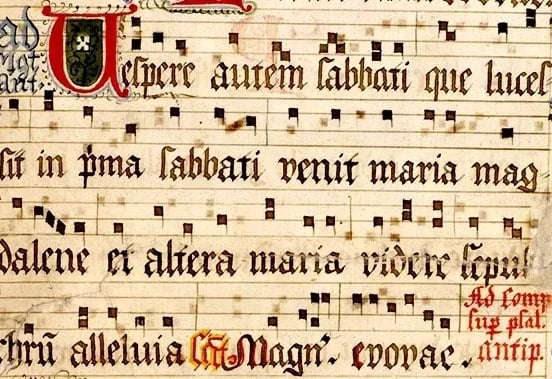 ad
Uespere autem sabbati que luces
sit in pma sabbati venit maria mag
dalene et altera maria videre sepul
chrū alleluia Magnᶜ. evovae.
Ad comp
sup psal.
antip.